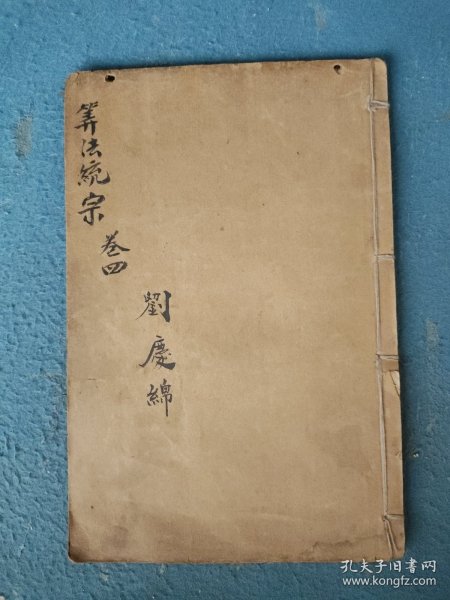 筭法統宗
卷四
劉慶綿
孔夫子旧书网
www.kongfz.com